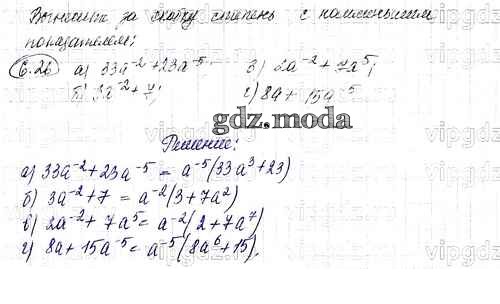 Вынесите за скобку степень с наименьшим
показателем:
6.26 а) 33a⁻² + 23a⁻⁵; в) 2a⁻² + 7a⁵;
б) 3a⁻² + 7; г) 8a + 15a⁻⁵
gdz.moda
Решение:
а) 33a⁻² + 23a⁻⁵ = a⁻⁵(33a³ + 23)
б) 3a⁻² + 7 = a⁻²(3 + 7a²)
в) 2a⁻² + 7a⁵ = a⁻²(2 + 7a⁷)
г) 8a + 15a⁻⁵ = a⁻⁵(8a⁶ + 15).